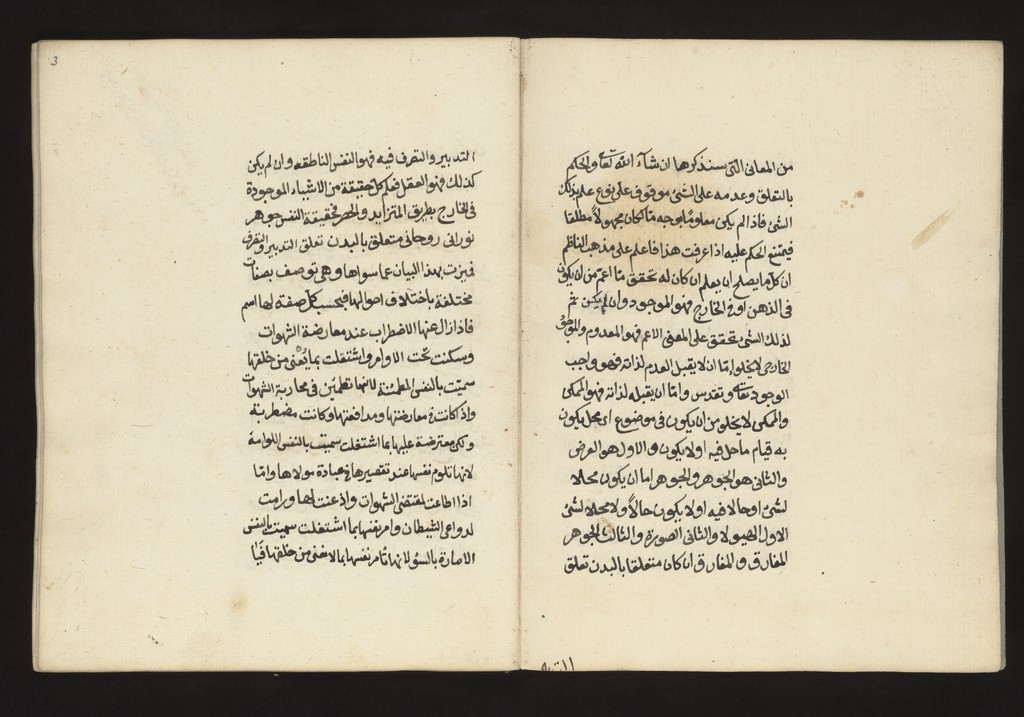 من المعانى التى سنذكرها ان شآء الله تعالى والحكم
بالتعلق وعدمه على الشئ موقوف على نوع علم بذلك
الشئ فاذا لم يكن معلوما بوجه ما كان مجهولا مطلقا
فيمتنع الحكم عليه اذا عرفت هذا فاعلم على مذهب الناظم
ان كل ما يصلح ان يعلم ان كان له تحقق ما اعم من ان يكون
فى الذهن او فى الخارج فهو الموجود وان لم يكن ثم
لذلك الشئ تحقق على المعنى الاعم فهو المعدوم والموجود
الخارجى لا يخلو امّا ان لا يقبل العدم لذاته فهو واجب
الوجود تعالى وتقدس وامّا ان يقبله لذاته فهو الممكن
والممكن لا يخلو من ان يكون فى موضوع اى محل يكون
به قيام ما حل فيه اولا يكون والاول هو العرض
والثانى هو الجوهر والجوهر اما ان يكون محلا
لشئ او حالا فيه اولا يكون حالاً ولا محلا لشئ
الاول الهيولا والثانى الصورة والثالث الجوهر
المفارق والمفارق ان كان متعلقا بالبدن تعلق
التدبير
3
التدبير والتصرف فيه فهو النفس الناطقه وان لم يكن
كذلك فهو العقل فعلم كل حقيقة من الاشياء الموجودة
فى الخارج بطريق المتزايد والحصر فحقيقة النفس جوهر
نورانى روحانى متعلق بالبدن تعلق التدبير والتصرف
فميزت بهذا البيان عما سواها وهى توصف بصفات
مختلفة باختلاف احوالها فبحسب كل صفة لها اسم
فاذا زال عنها الاضطراب عند معارضة الشهوات
وسكنت تحت الاوامر واشتغلت بما يُعْنى من خلقها
سميّت بالنفس المطمئنة لانها تطمئن فى محاربة الشهوات
واذ كانت معارضتها ومدافعتها وكانت مضطربة
ولكن معترضة عليها بما اشتغلت سميت بالنفس اللوامة
لانها تلوم نفسها عند تقصيرها فى عبادة مولاها وامّا
اذا اطاعت لمقتضى الشهوات واذعنت لها ورامت
لدواعى الشيطان وامر نفسها بما اشتغلت سميت بالنفس
الامارة بالسؤ لانها تأمر نفسها بما لا يعنى من خلقها